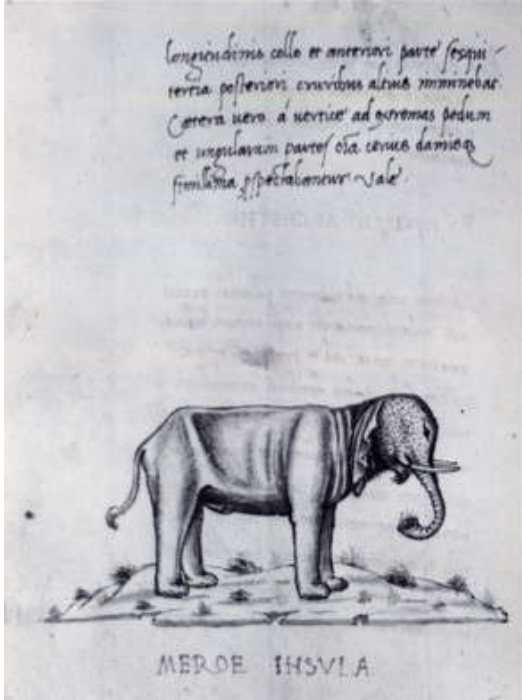 longitudine collo et anteriori parte sesqui-
tertia posteriori cruribus altius imminebat.
Cætera uero á uertice ad extremas pedum
et ungularum partes oĩa ceruis damisq;
simillima pspectabantur Vale.
MEROE INSVLA